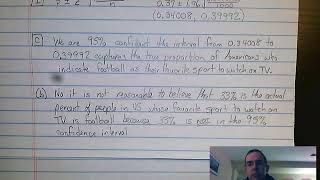 p ± z
n
0.37 ± 1.96
1000
(0.34008, 0.39992)
(c) We are 95% confident the interval from 0.34008 to
0.39992 captures the true proportion of Americans who
indicate football as their favorite sport to watch on TV.
(b) No it is not reasonable to believe that 33% is the actual
percent of people in US whose favorite sport to watch on
TV is football because 33% is not in the 95%
confidence interval